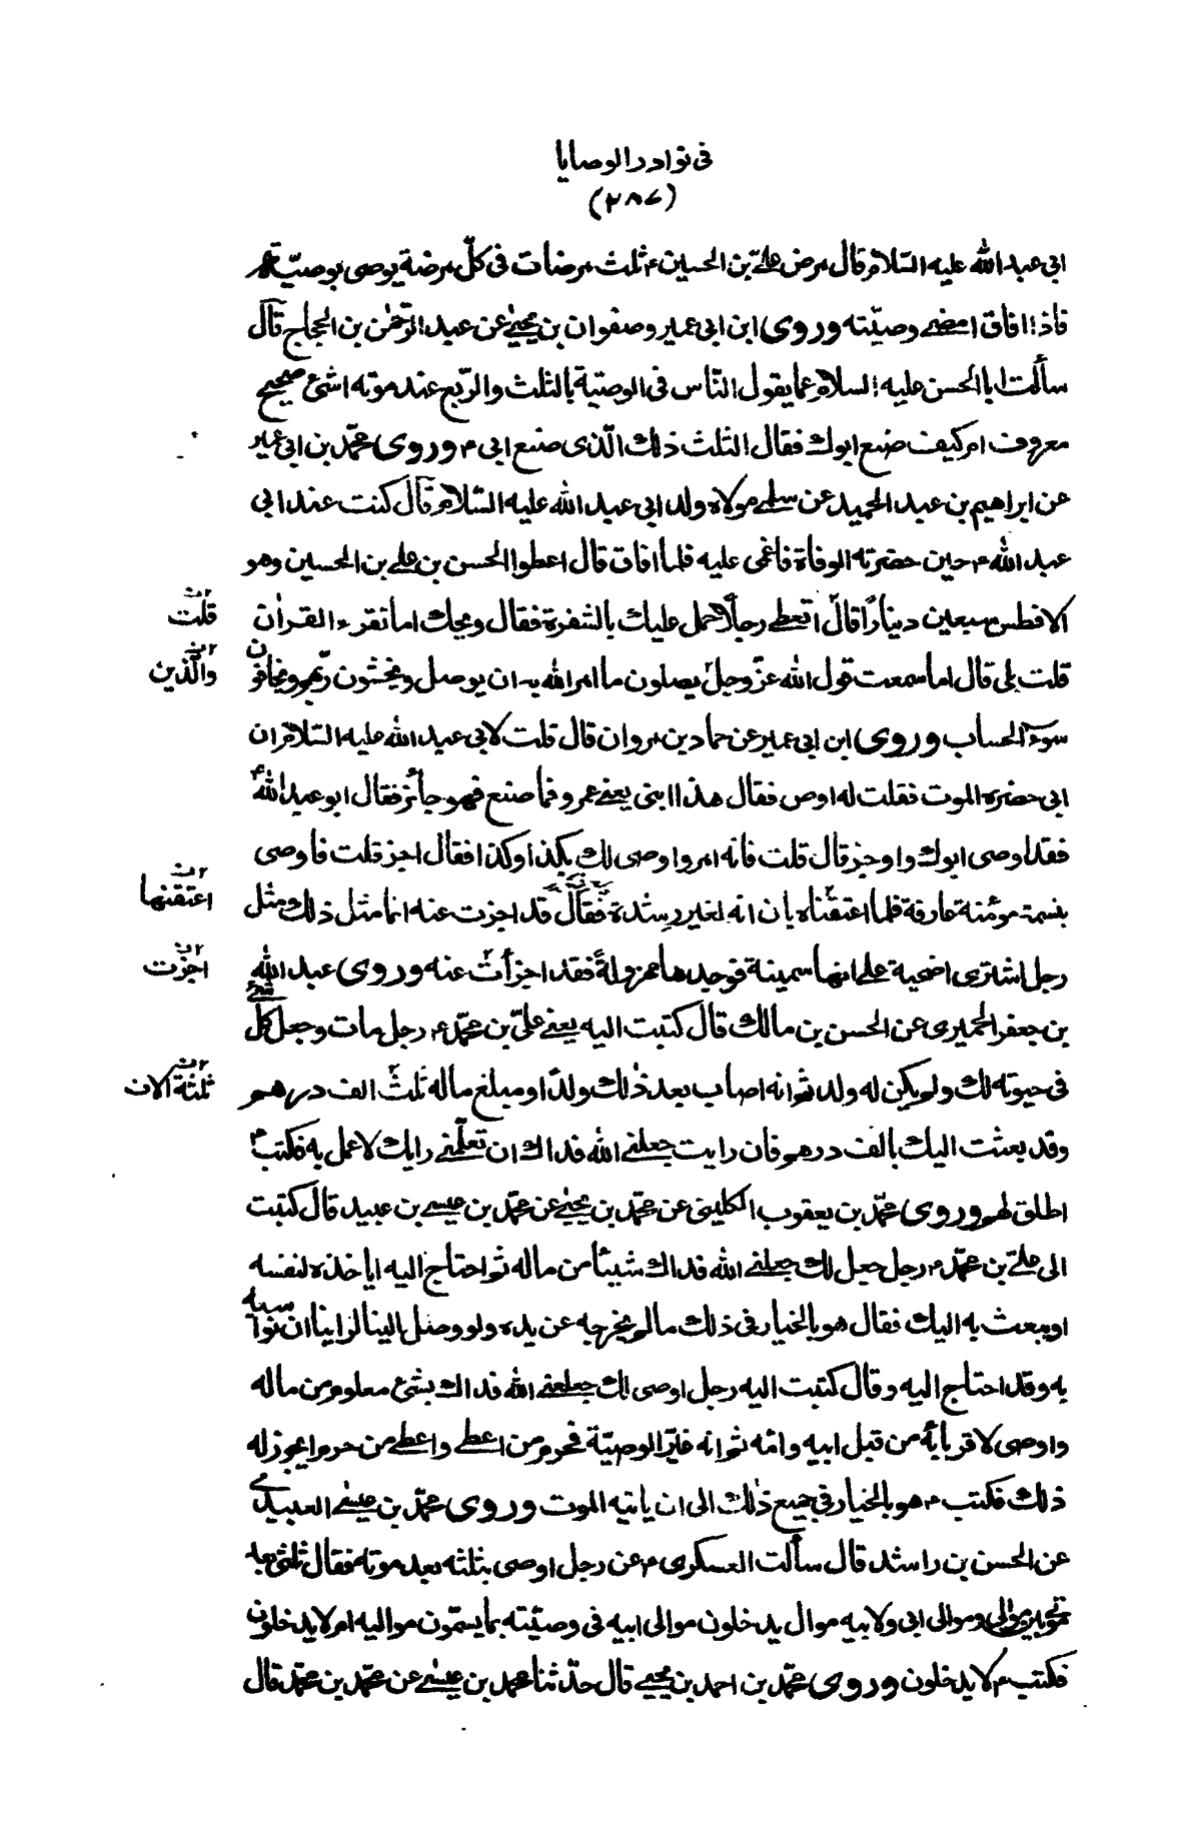 فى نوادر الوصايا
(٢٨٧)
ابى عبد الله عليه السّلام قال مرض علىّ بن الحسين ء ثلث مرضات فى كلّ مرضة يوصى بوصيّة
فاذا افاق امضى وصيّته وروى ابن ابى عمير وصفوان بن يحيى عن عبد الرّحمٰن بن الحجاج قال
سألت ابا الحسن عليه السلام عما يقول النّاس فى الوصيّة بالثلث والرّبع عند موته اشئ صحيح
معروف ام كيف صنع ابوك فقال الثلث ذلك الّذى صنع ابى م وروى محمّد بن ابى عمير
عن ابراهيم بن عبد الحميد عن سلمى مولاة ولد ابى عبد الله عليه السّلام قال كنت عند ابى
عبد الله م حين حضرته الوفاة فاغمى عليه فلما افاق قال اعطوا الحسن بن على بن الحسين وهو
الافطس سبعين دينارًا قال اتعطى رجلًا حمل عليك بالشفرة فقال ويحك اما تقرء القراٰن
قلت
قلت بلى قال اما سمعت قول الله عزّ وجلّ يصلون ما امر الله به ان يوصل ويخشون ربّهم ويخافون
والّذين
سوء الحساب وروى ابن ابى عمير عن حماد بن مروان قال قلت لابى عبد الله عليه السّلام ان
ابى حضره الموت فقلت له اوص فقال هذا ابنى يعنى عمرو فما صنع فهو جائز فقال ابو عبد الله ء
فقد اوصى ابوك واوجز قال قلت فانه امر واوصى لك بكذا وكذا فقال اجز قلت فاوصى
بنسمة مؤمنة عارفة فلما اعتقناه بان انه لغير رشدة فقال قد اجزت عنه انما مثل ذلك مثل
اعتقنها
رجل اشترى اضحية على انها سمينة فوجدها مهزولةً فقد اجزأت عنه وروى عبد الله
اجزت
بن جعفر الحميرى عن الحسن بن مالك قال كتبت اليه يعنى علىّ بن محمّد ء رجل مات وجعل كل شئ
فى حيوته لك ولم يكن له ولد ثم انه اصاب بعد ذٰلك ولدًا ومبلغ ماله ثلث الف درهم
ثلثة آلاف
وقد بعثت اليك بالف درهم فان رايت جعلنى الله فداك ان تعلّمنى رايك لاعمل به فكتب م
اطلق لهم وروى محمّد بن يعقوب الكلينى عن محمّد بن يحيى عن محمّد بن عيسى بن عبيد قال كتبت
الى علىّ بن محمّد م رجل جعل لك جعلنى الله فداك شيئًا من ماله ثم احتاج اليه اياخذه لنفسه
او يبعث به اليك فقال هو بالخيار فى ذلك ما لم يخرجه عن يده ولو وصل الينا لراينا ان نواسيه
به وقد احتاج اليه وقال كتبت اليه رجل اوصى لك جعلنى الله فداك بشئ معلوم من ماله
واوصى لاقربائه من قبل ابيه وامّه ثم انه غيّر الوصيّة فحرم من اعطى واعطى من حرم ايجوز له
ذلك فكتب م هو بالخيار فى جميع ذٰلك الى ان ياتيه الموت وروى محمّد بن عيسى العبيدى
عن الحسن بن راشد قال سألت العسكرى م عن رجل اوصى بثلثه بعد موته فقال ثلثى بعد
موتى بين موالى وموالى ابى ولابيه موال يدخلون موالى ابيه فى وصيّته بما يسمّون مواليه ام لا يدخلون
فكتب م لا يدخلون وروى محمّد بن احمد بن يحيى قال حدّثنا محمد بن عيسى عن محمّد بن محمّد قال